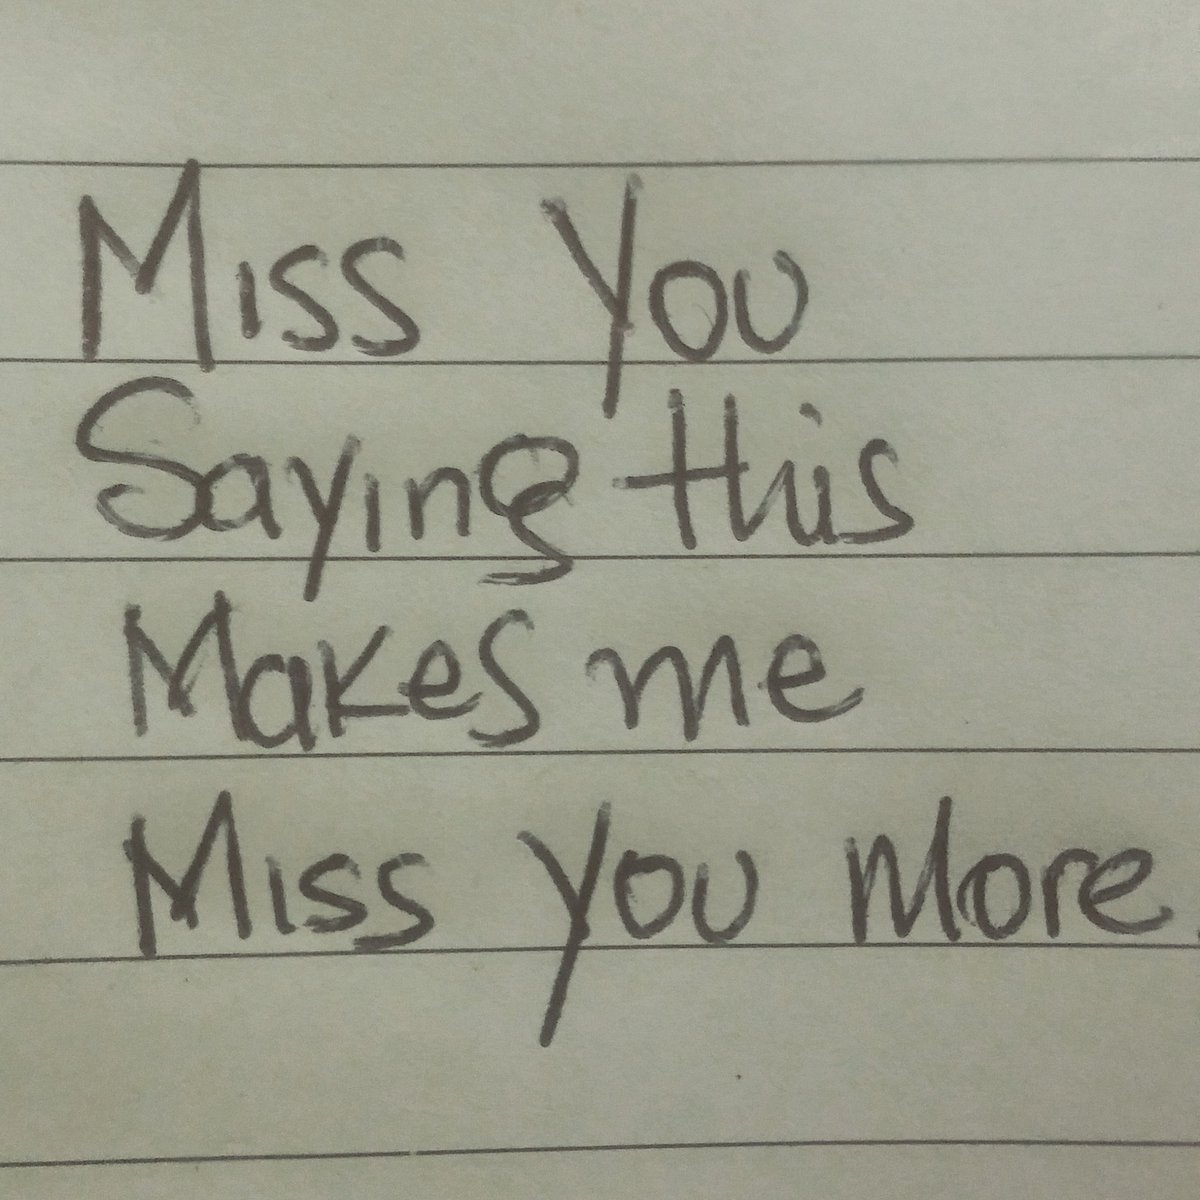 Miss You
Saying this
Makes me
Miss you More.